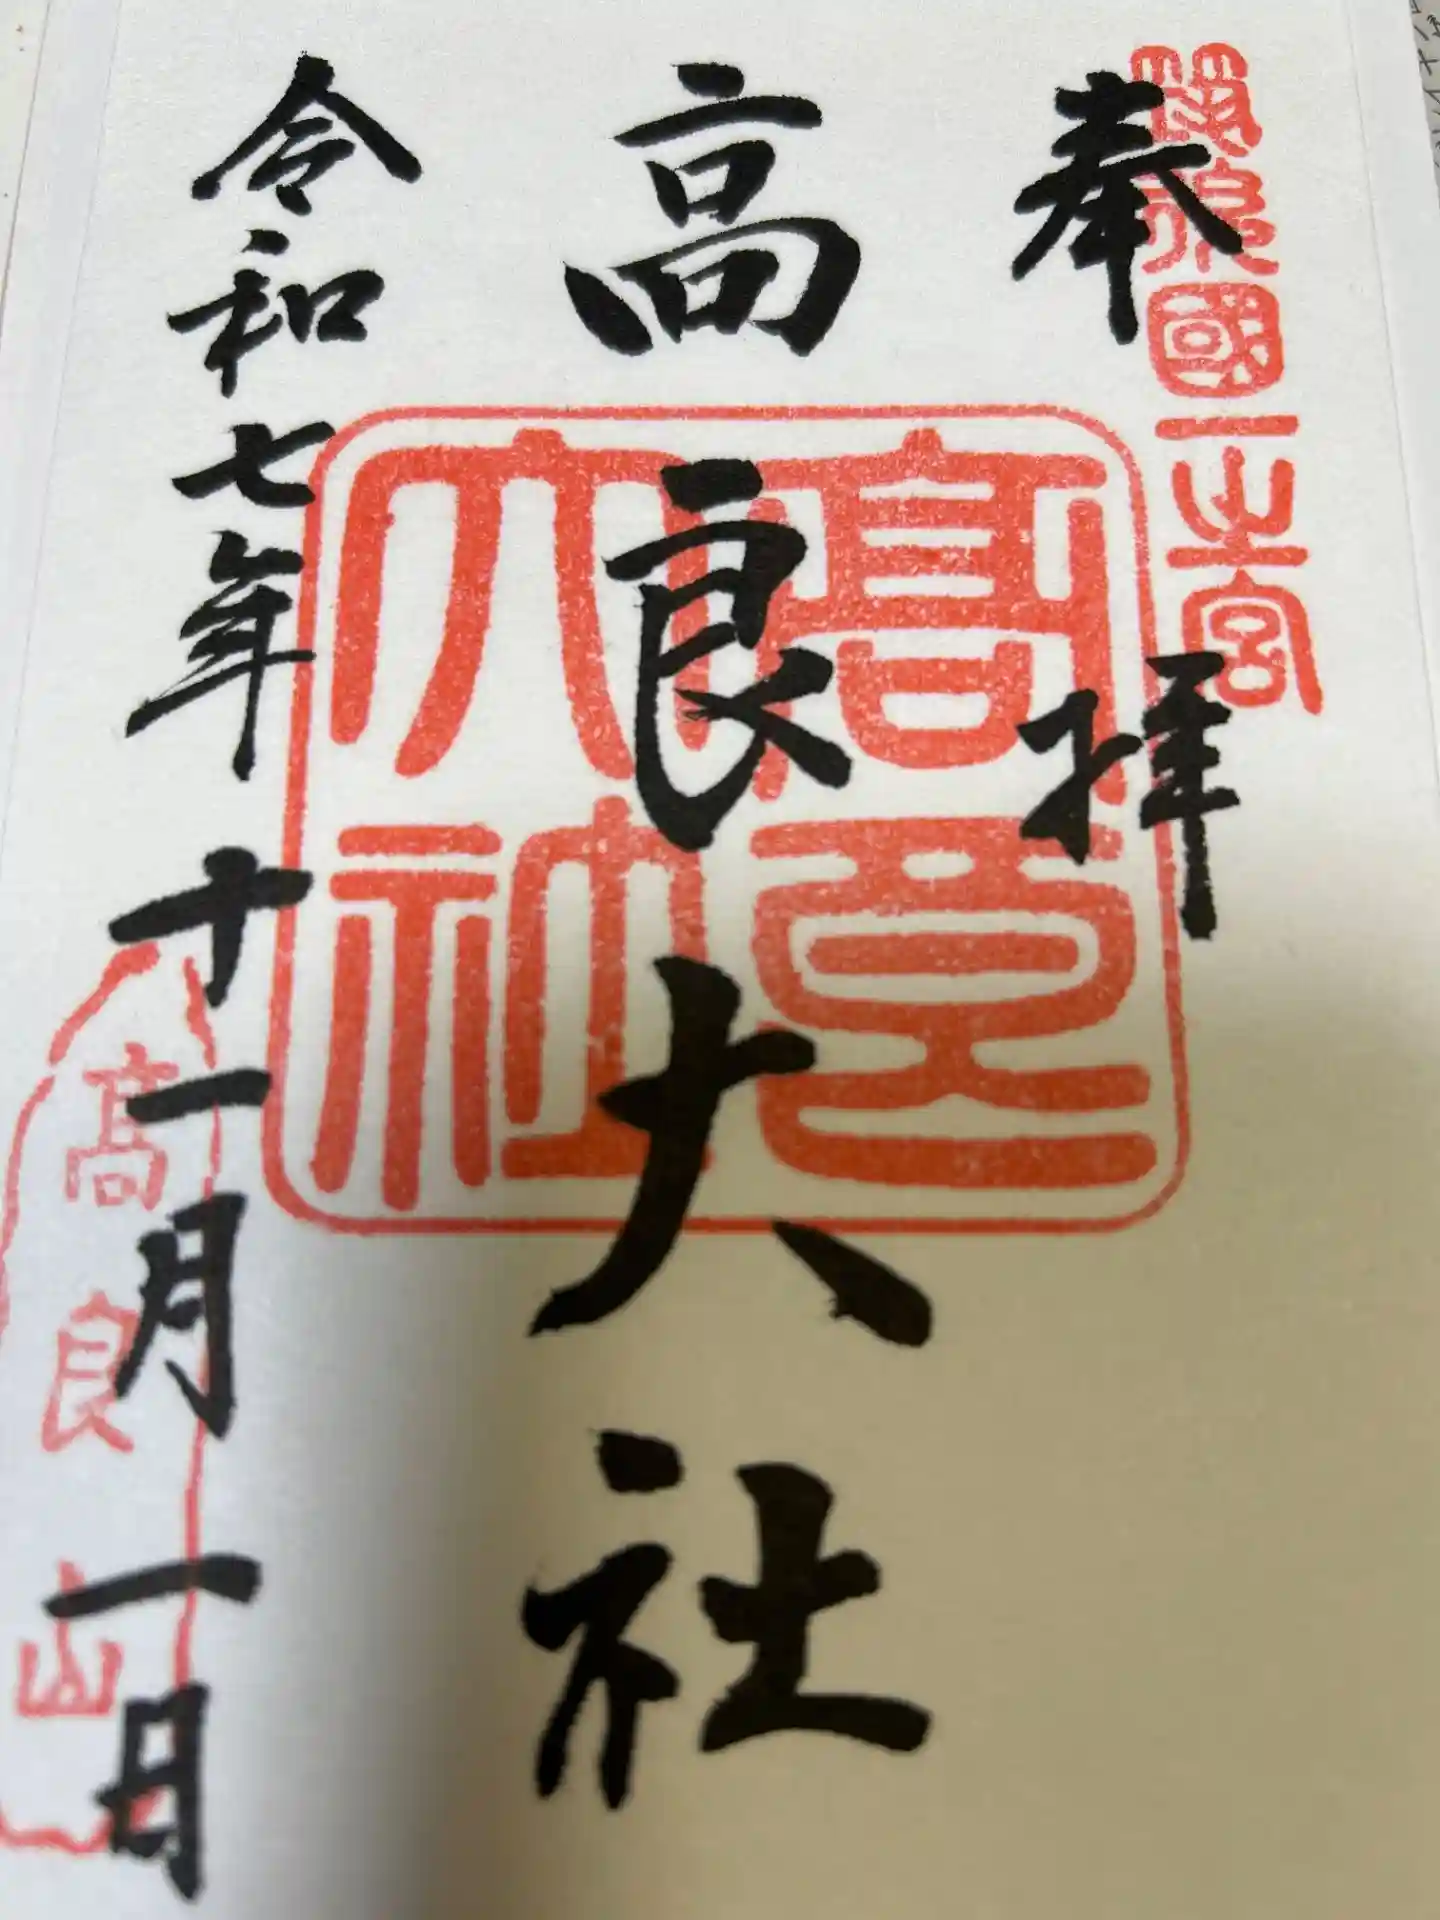 奉拝
國一之宮
高良大社
高良大社
令和七年十一月一日
高良山